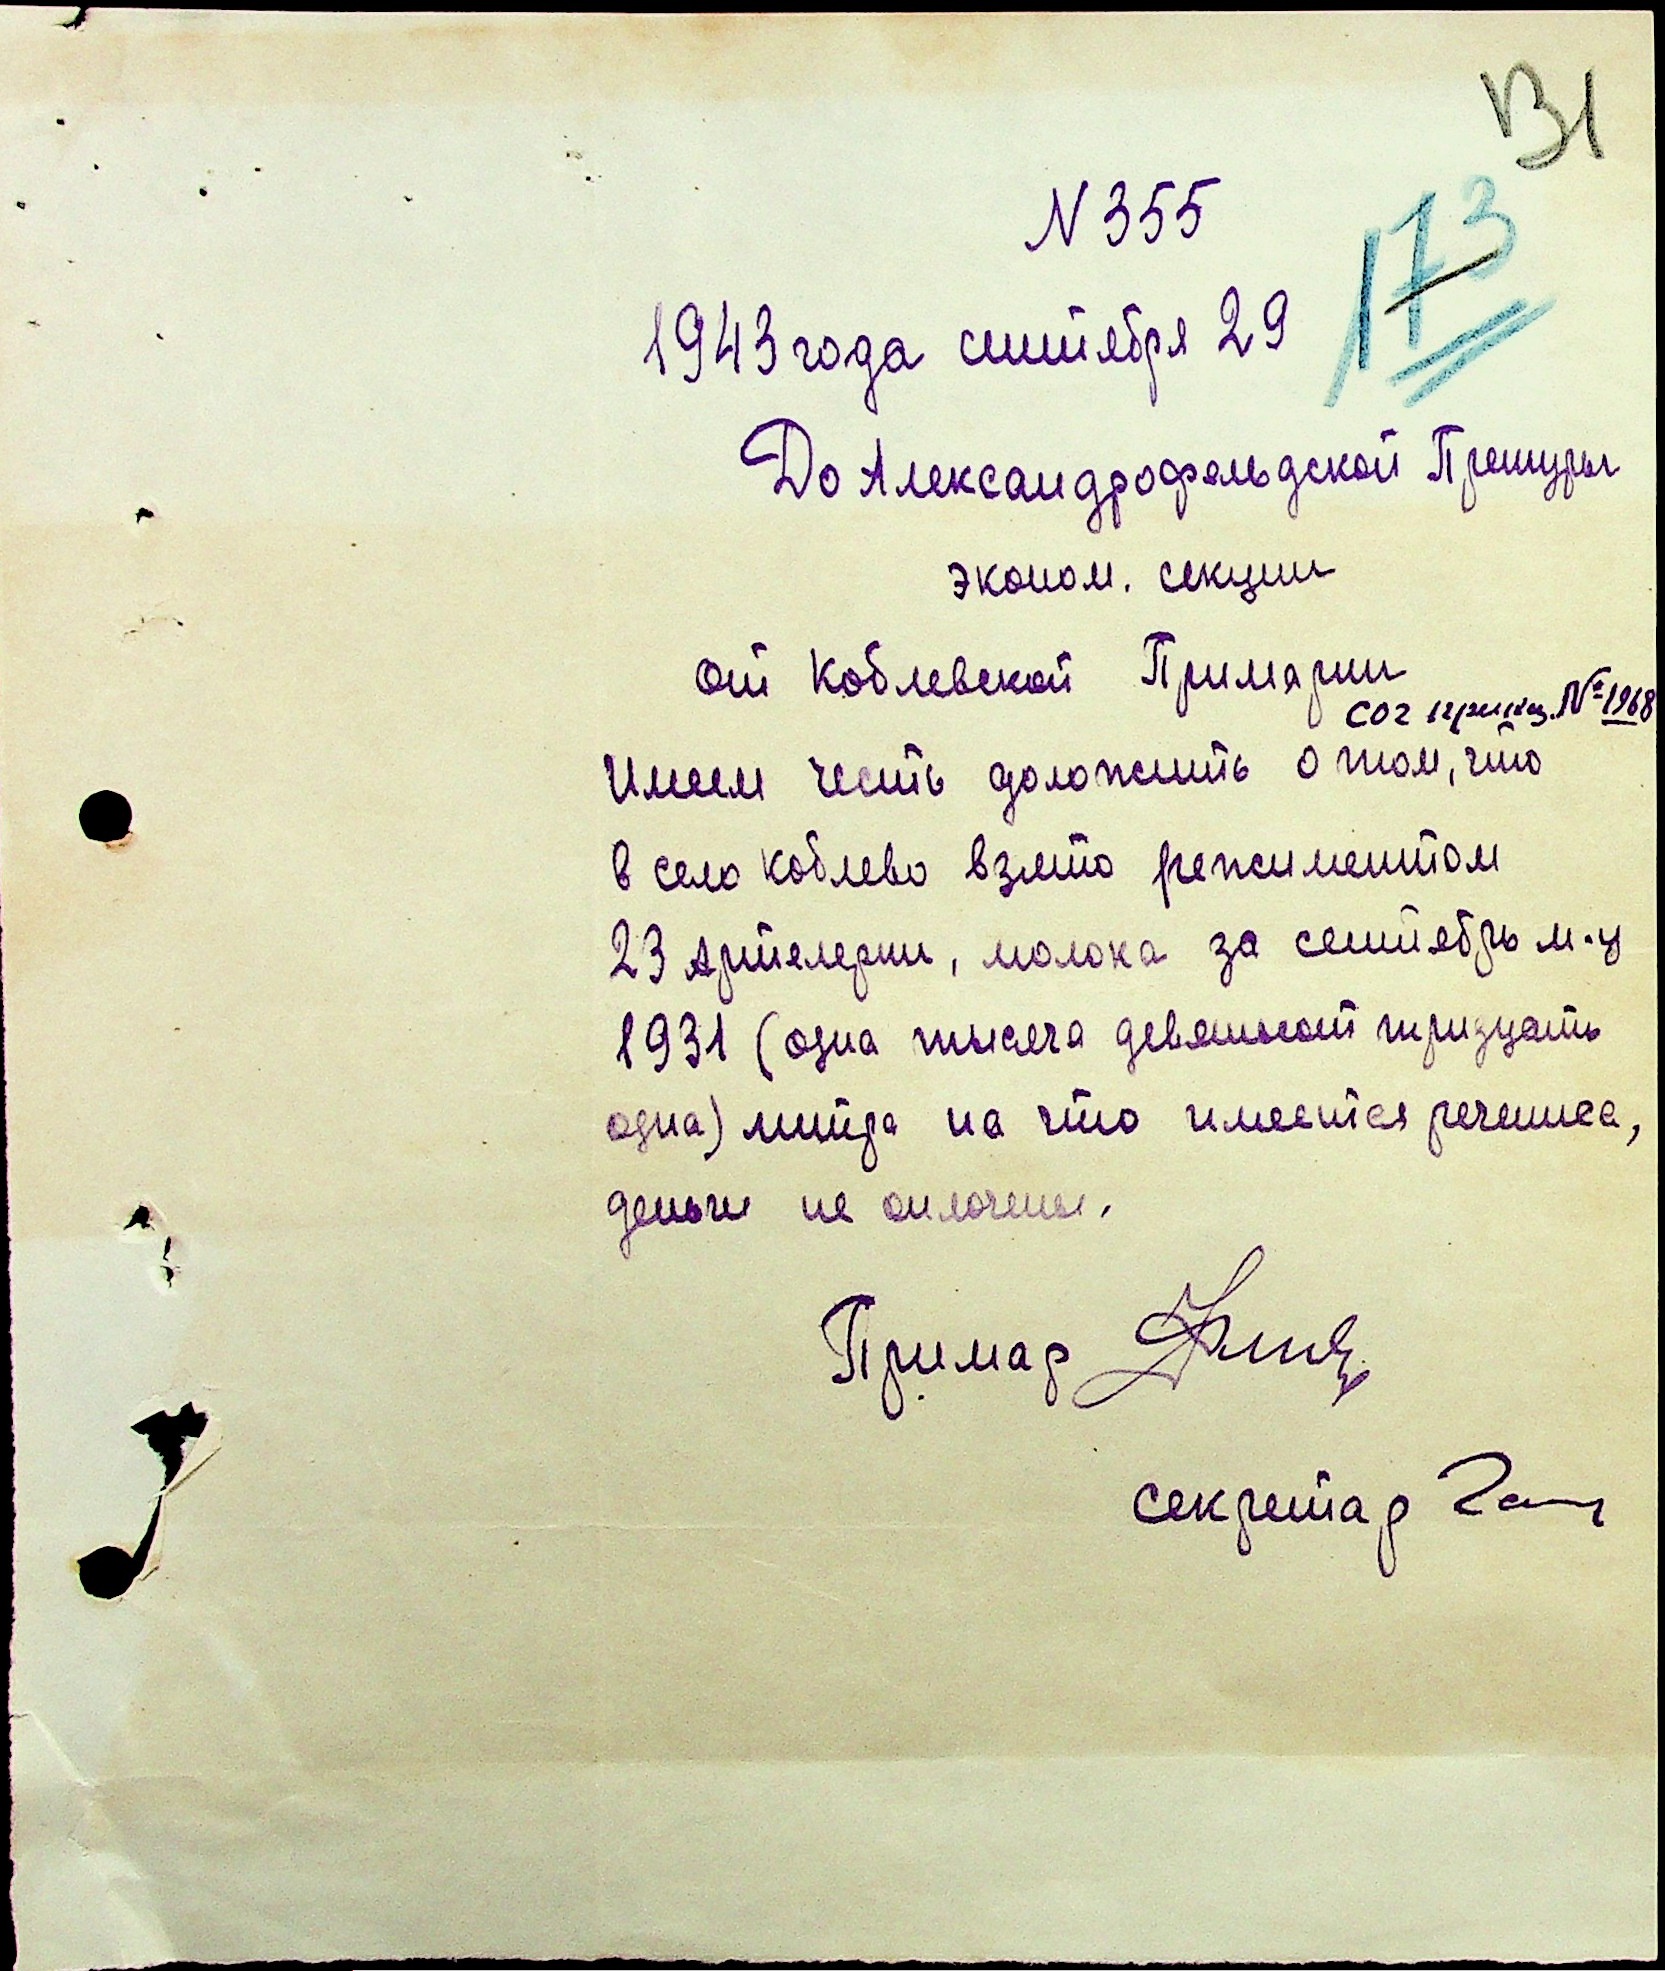 131
173
N 355
1943 года сентября 29
До Александрофельдской Претуры
эконом. секции
от Коблевской Примярии
сог приказ. № 1968
Имеем честь доложить о том, что
в село Коблево взято режиментом
23 Артелерии, молока за сентябрь м-ц
1931 (одна тысяча девятьсот тридцать
одна) литра на что имеется речеписа,
деньги не оплочены.
Примар
секретар